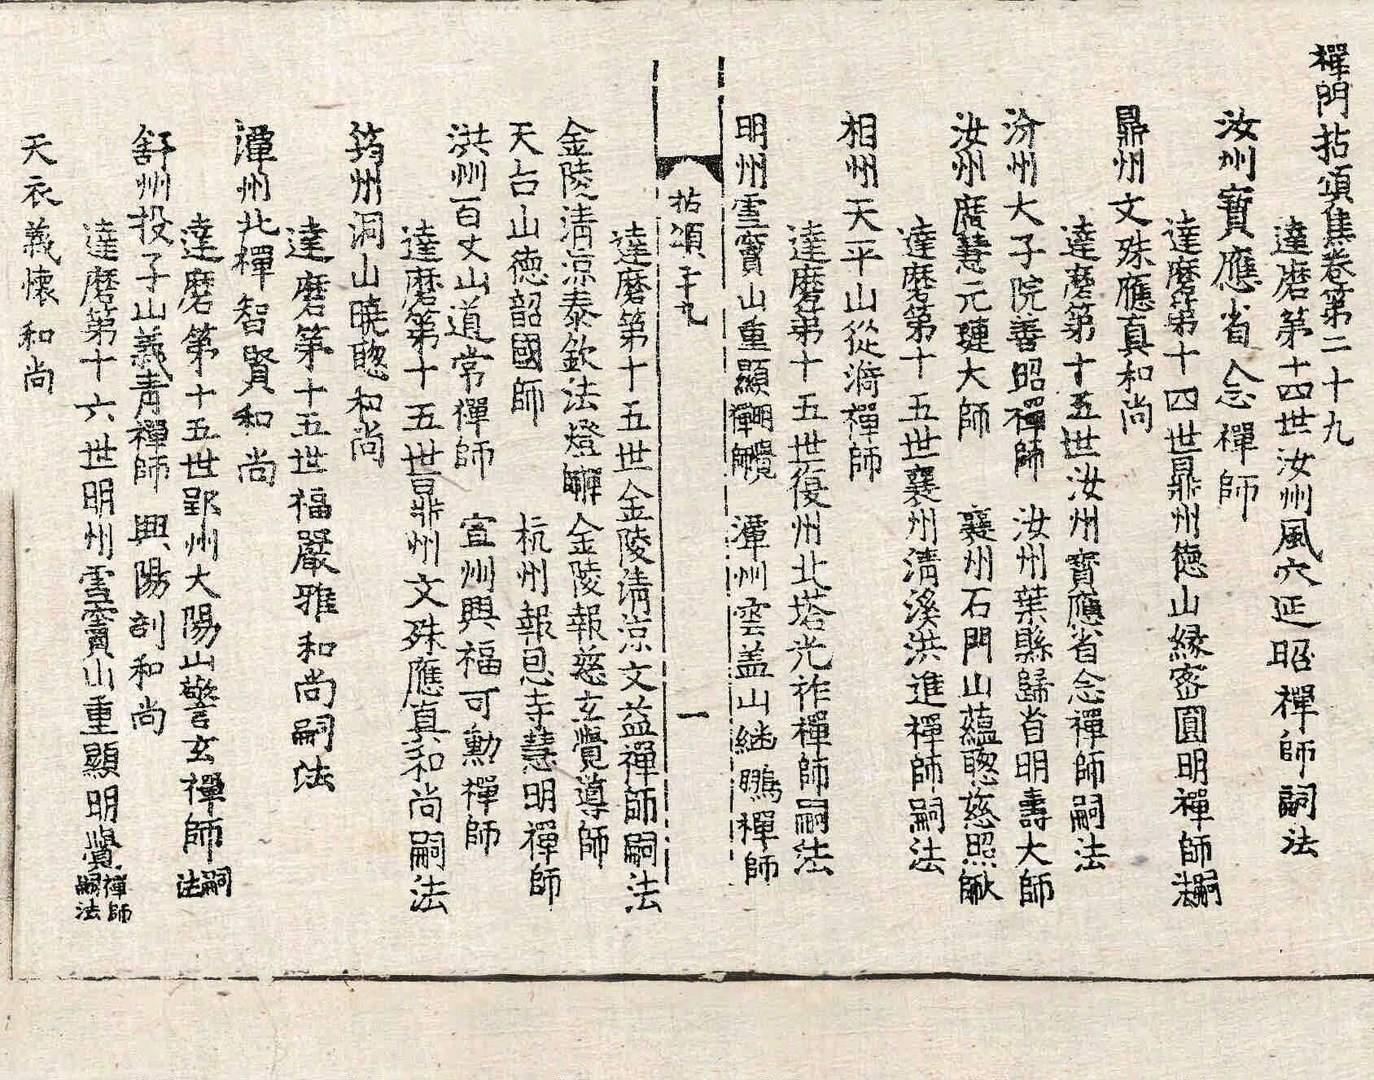 禪門拈頌集卷第二十九
達磨第十四世汝州風穴延昭禪師嗣法
汝州寶應省念禪師
達磨第十四世鼎州德山緣密圓明禪師嗣法
鼎州文殊應真和尚
達磨第十五世汝州寶應省念禪師嗣法
汾州大子院善昭禪師 汝州葉縣歸省明壽大師
汝州廣慧元璉大師 襄州石門山蘊聦慈照師
達磨第十五世襄州清溪洪進禪師嗣法
相州天平山從漪禪師
達磨第十五世復州北塔光祚禪師嗣法
明州雪竇山重顯明覺禪師 潭州雲盖山継鵬禪師
拈頌二十九 一
達磨第十五世金陵清凉文益禪師嗣法
金陵清凉泰欽法燈禪師 金陵報慈玄覺導師
天台山德韶國師 杭州報恩寺慧明禪師
洪州百丈山道常禪師 宣州興福可勳禪師
達磨第十五世鼎州文殊應真和尚嗣法
筠州洞山曉聦和尚
達磨第十五世福嚴雅和尚嗣法
潭州北禪智賢和尚
達磨第十五世郢州大陽山警玄禪師嗣法
舒州投子山義青禪師 興陽剖和尚
達磨第十六世明州雪竇山重顯明覺禪師嗣法
天衣義懷和尚